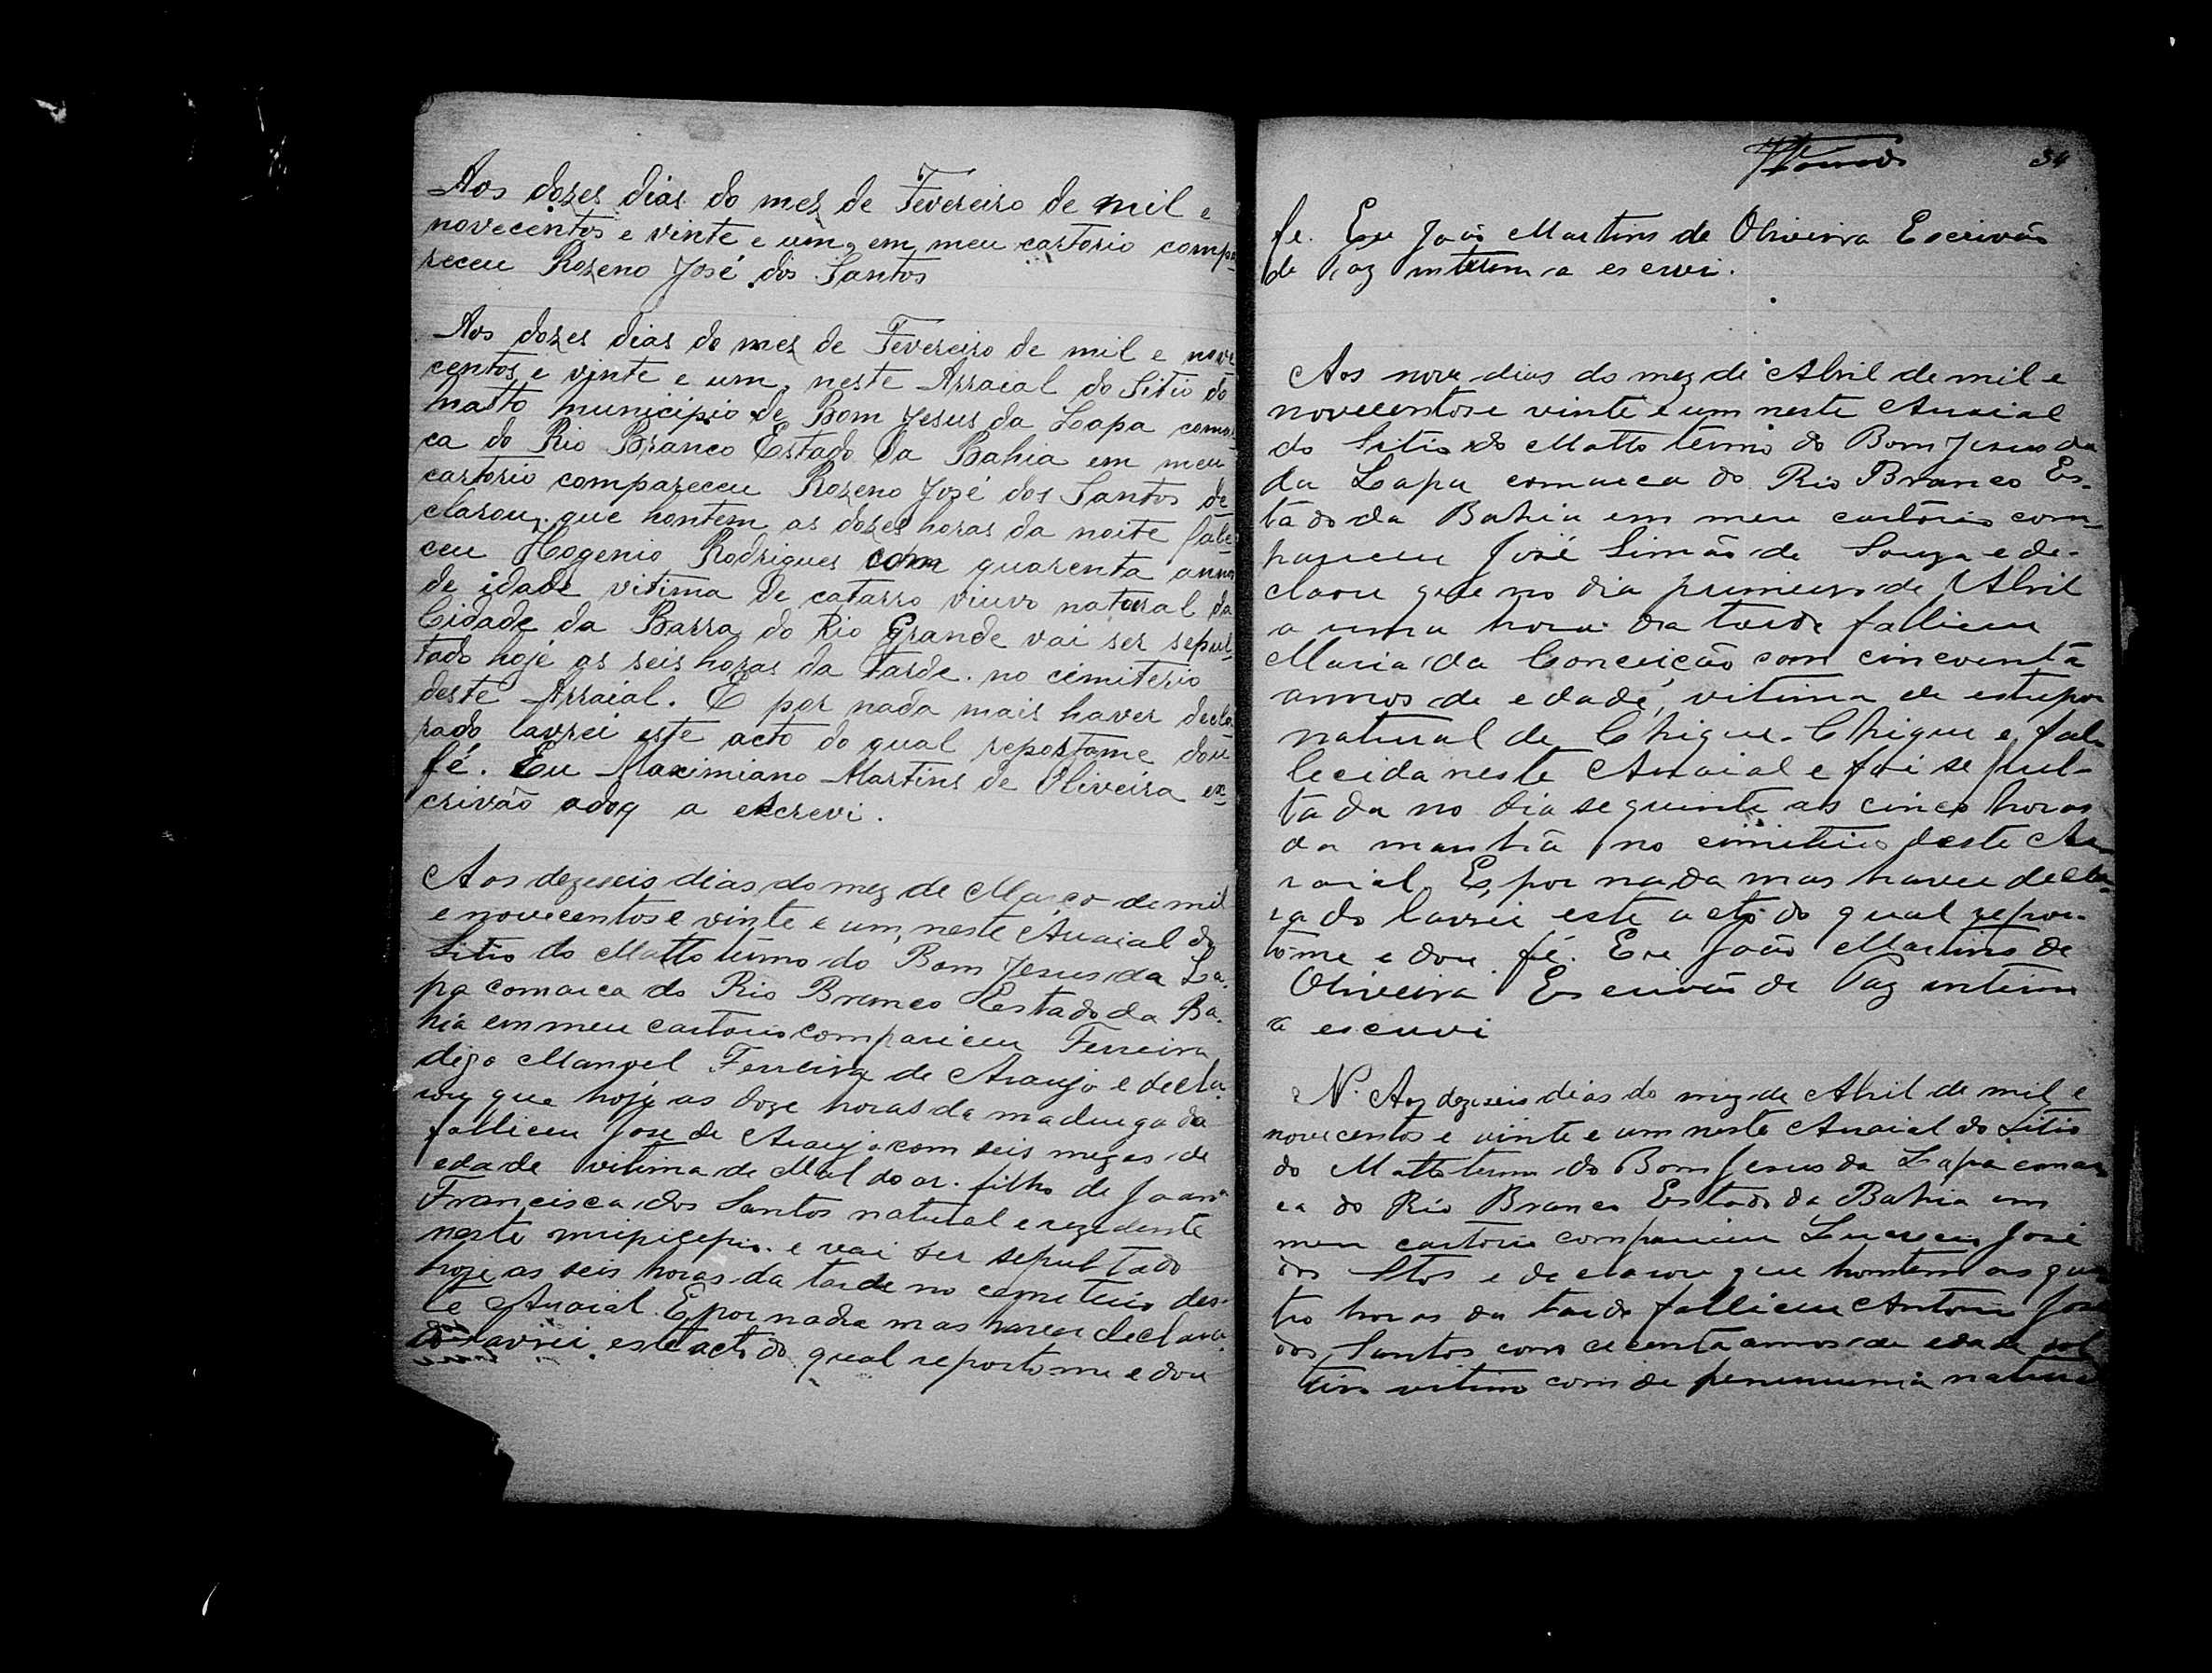 Aos dozes dias do mez de Fevereiro de mil e
novecentos e vinte e um, em meu cartorio compa-
receu Rozeno José dos Santos
Aos dozes dias do mez de Fevereiro de mil e nove
centos e vinte e um, neste Arraial do Sitio do
Matto municipio de Bom Jesus da Lapa comar
ca do Rio Branco Estado da Bahia em meu
cartorio compareceu Rozeno José dos Santos de-
clarou que hontem as dozes horas da noite fale-
ceu Hogenio Rodrigues com quarenta annos
de idade vitima de catarro viuvo natural da
Cidade da Barra do Rio Grande vai ser sepul-
tado hoje as seis horas da tarde no cimiterio
deste Arraial. E por nada mais haver decla
rado lavrei este acto do qual repostome dou
fé. Eu Maximiano Martins de Oliveira es-
crivão adoq a escrevi.
Aos dezeseis dias do mez de Março de mil
e novecentos e vinte e um, neste Arraial do
Sitio do Matto termo do Bom Jesus da La-
pa comarca do Rio Branco Estado da Ba-
hia em meu cartorio compariceu Ferreira
digo Manoel Ferreira de Araujo e decla-
rou que hoje as doze horas da madrugada
falliceu José de Araujo com seis mezes de
edade vitima de Mal do ar. filho de Joana
Francisca dos Santos natural e rezidente
neste e vai ser sepultado
hoje as seis horas da tarde no cemeterio des-
te Arraial. E por nada mas haver declara
lavrei este acto do qual reporto-me e dou
34
fe. Eu João Martins de Oliveira Escrivão
de Paz interino a escrvi.
Aos nove dias do mez de Abril de mil e
novecentos e vinte e um neste Arraial
do Sitio do Matto termo do Bom Jesus da
da Lapa comarca do Rio Branco Es-
tado da Bahia em meu cartorio com-
pareceu José Simão de Souza e de-
clarou que no dia primeiro de Abril
a uma hora da tarde falliceu
Maria da Conceição com cincoenta
annos de edade, vitima de estupor
natural de Chique-Chique e fal-
lecida neste Arraial e foi sepul-
tada no dia seguinte as cinco horas
da manhã no cimiterio deste Ar-
raial. E, por nada mas haver decla-
rado lavrei este acto do qual repor-
tome e dou fé. Eu João Martins de
Oliveira Escrivão de Paz interino
a escrevi
N. Aos dezeseis dias do mez de Abril de mil e
novecentos e vinte e um neste Arraial do Sitio
do Matto termo do Bom Jesus da Lapa comar
ca do Rio Branco Estado da Bahia em
meu cartorio compariceu José
dos Stos e declarou que hontem as qua
tro horas da tarde falliceu Antonio José
dos Santos com cecenta annos de edade sol
teiro vitima com de natural